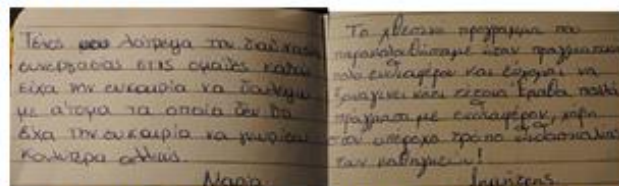 Τέλος λάτρεψα την διαδικασία
συνεργασίας στις ομάδες καθώς
είχα την ευκαιρία να δουλέψω
με άτομα τα οποία δεν θα
είχα την ευκαιρία να γνωρίσω
καλύτερα αλλιώς.
Μαρία
Το χθεσινό πρόγραμμα που
παρακολουθήσαμε ήταν πραγματικά
πολύ ενδιαφέρον και εύχομαι να
ξαναγίνει κάτι τέτοιο. Έμαθα πολλά
πράγματα με ενδιαφέρον, χάρη
στον υπέροχο τρόπο διδασκαλίας
των καθηγητών!
Δημήτρης